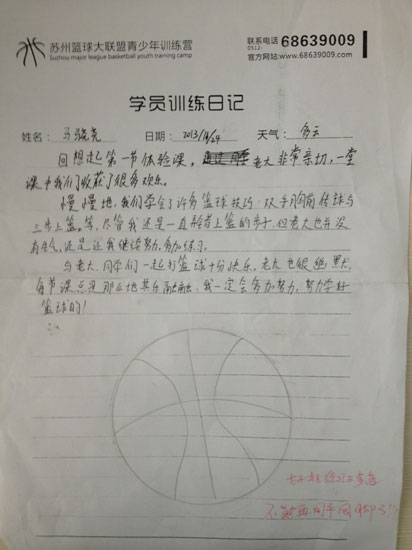 苏州篮球大联盟青少年训练营
Suzhou major league basketball youth training camp
联系电话 0512- 68639009
官方网站:www.68639009.com
学员训练日记
姓名: 马骁尧 日期: 2013/8/29 天气: 多云
回想起第一节体验课, 老大非常亲切,一堂
课中我们收获了很多欢乐。
慢慢地,我们学会了许多篮球技巧:双手胸前传球与
三步上篮。等,尽管我还是一直
上篮的 但老大也并没
有 还是让我继续努力,多加练习。
与老大、同学们一起打篮球十分快乐。老大也很幽默,
每节课总是那么地其乐融融。我一定会多加努力,努力学好
篮球的!
好好练习三步篮
不能再同手同脚了!!